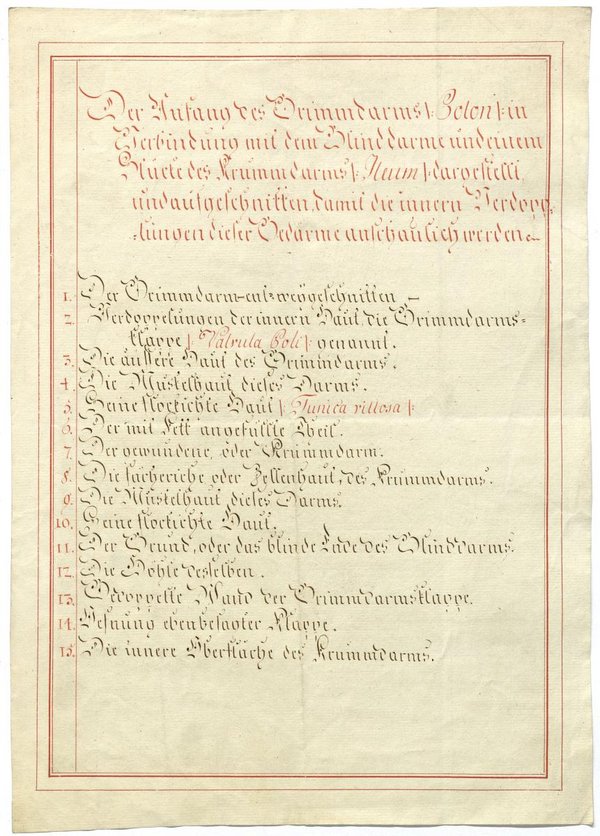 Der Anfang des Grimmdarms /: Colon :/ in
Verbindung mit dem Blinddarme und einem
Stücke des Krummdarms /: Ileum :/ dargestellt,
und aufgeschnitten, damit die innern Verdopp-
-lungen dieser Gedärme anschaulich werden.
1. Der Grimmdarm entzweygeschnitten
2. Verdoppelungen der innern Haut, die Grimmdarms-
klappe /: Valvula Coli :/ genannt.
3. Die äussere Haut des Grimmdarms.
4. Die Muskelhaut dieses Darms.
5. Seine flockichte Haut /: Tunica villosa :/
6. Der mit Fett angefüllte Theil.
7. Der gewundene, oder Krummdarm.
8. Die fächeriche oder Zellenhaut, des Krummdarms.
9. Die Muskelhaut dieses Darms.
10. Seine flockichte Haut.
11. Der Grund, oder das blinde Ende des Blinddarms.
12. Die Höhle desselben.
13. Gedoppelte Wand der Grimmdarmsklappe.
14. Oefnung ebenbesagter Klappe.
15. Die innere Oberfläche des Krummdarms.